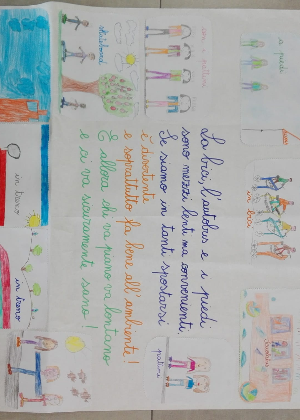 La bici, l'autobus e i piedi
sono mezzi lenti ma convenienti.
Se siamo in tanti spostarsi
è divertente
e soprattutto fa bene all'ambiente!
E allora chi va piano va lontano
e ci va sicuramente sano!
a piedi
in bici
scuolabus
pattini
skateboard
in treno
in treno